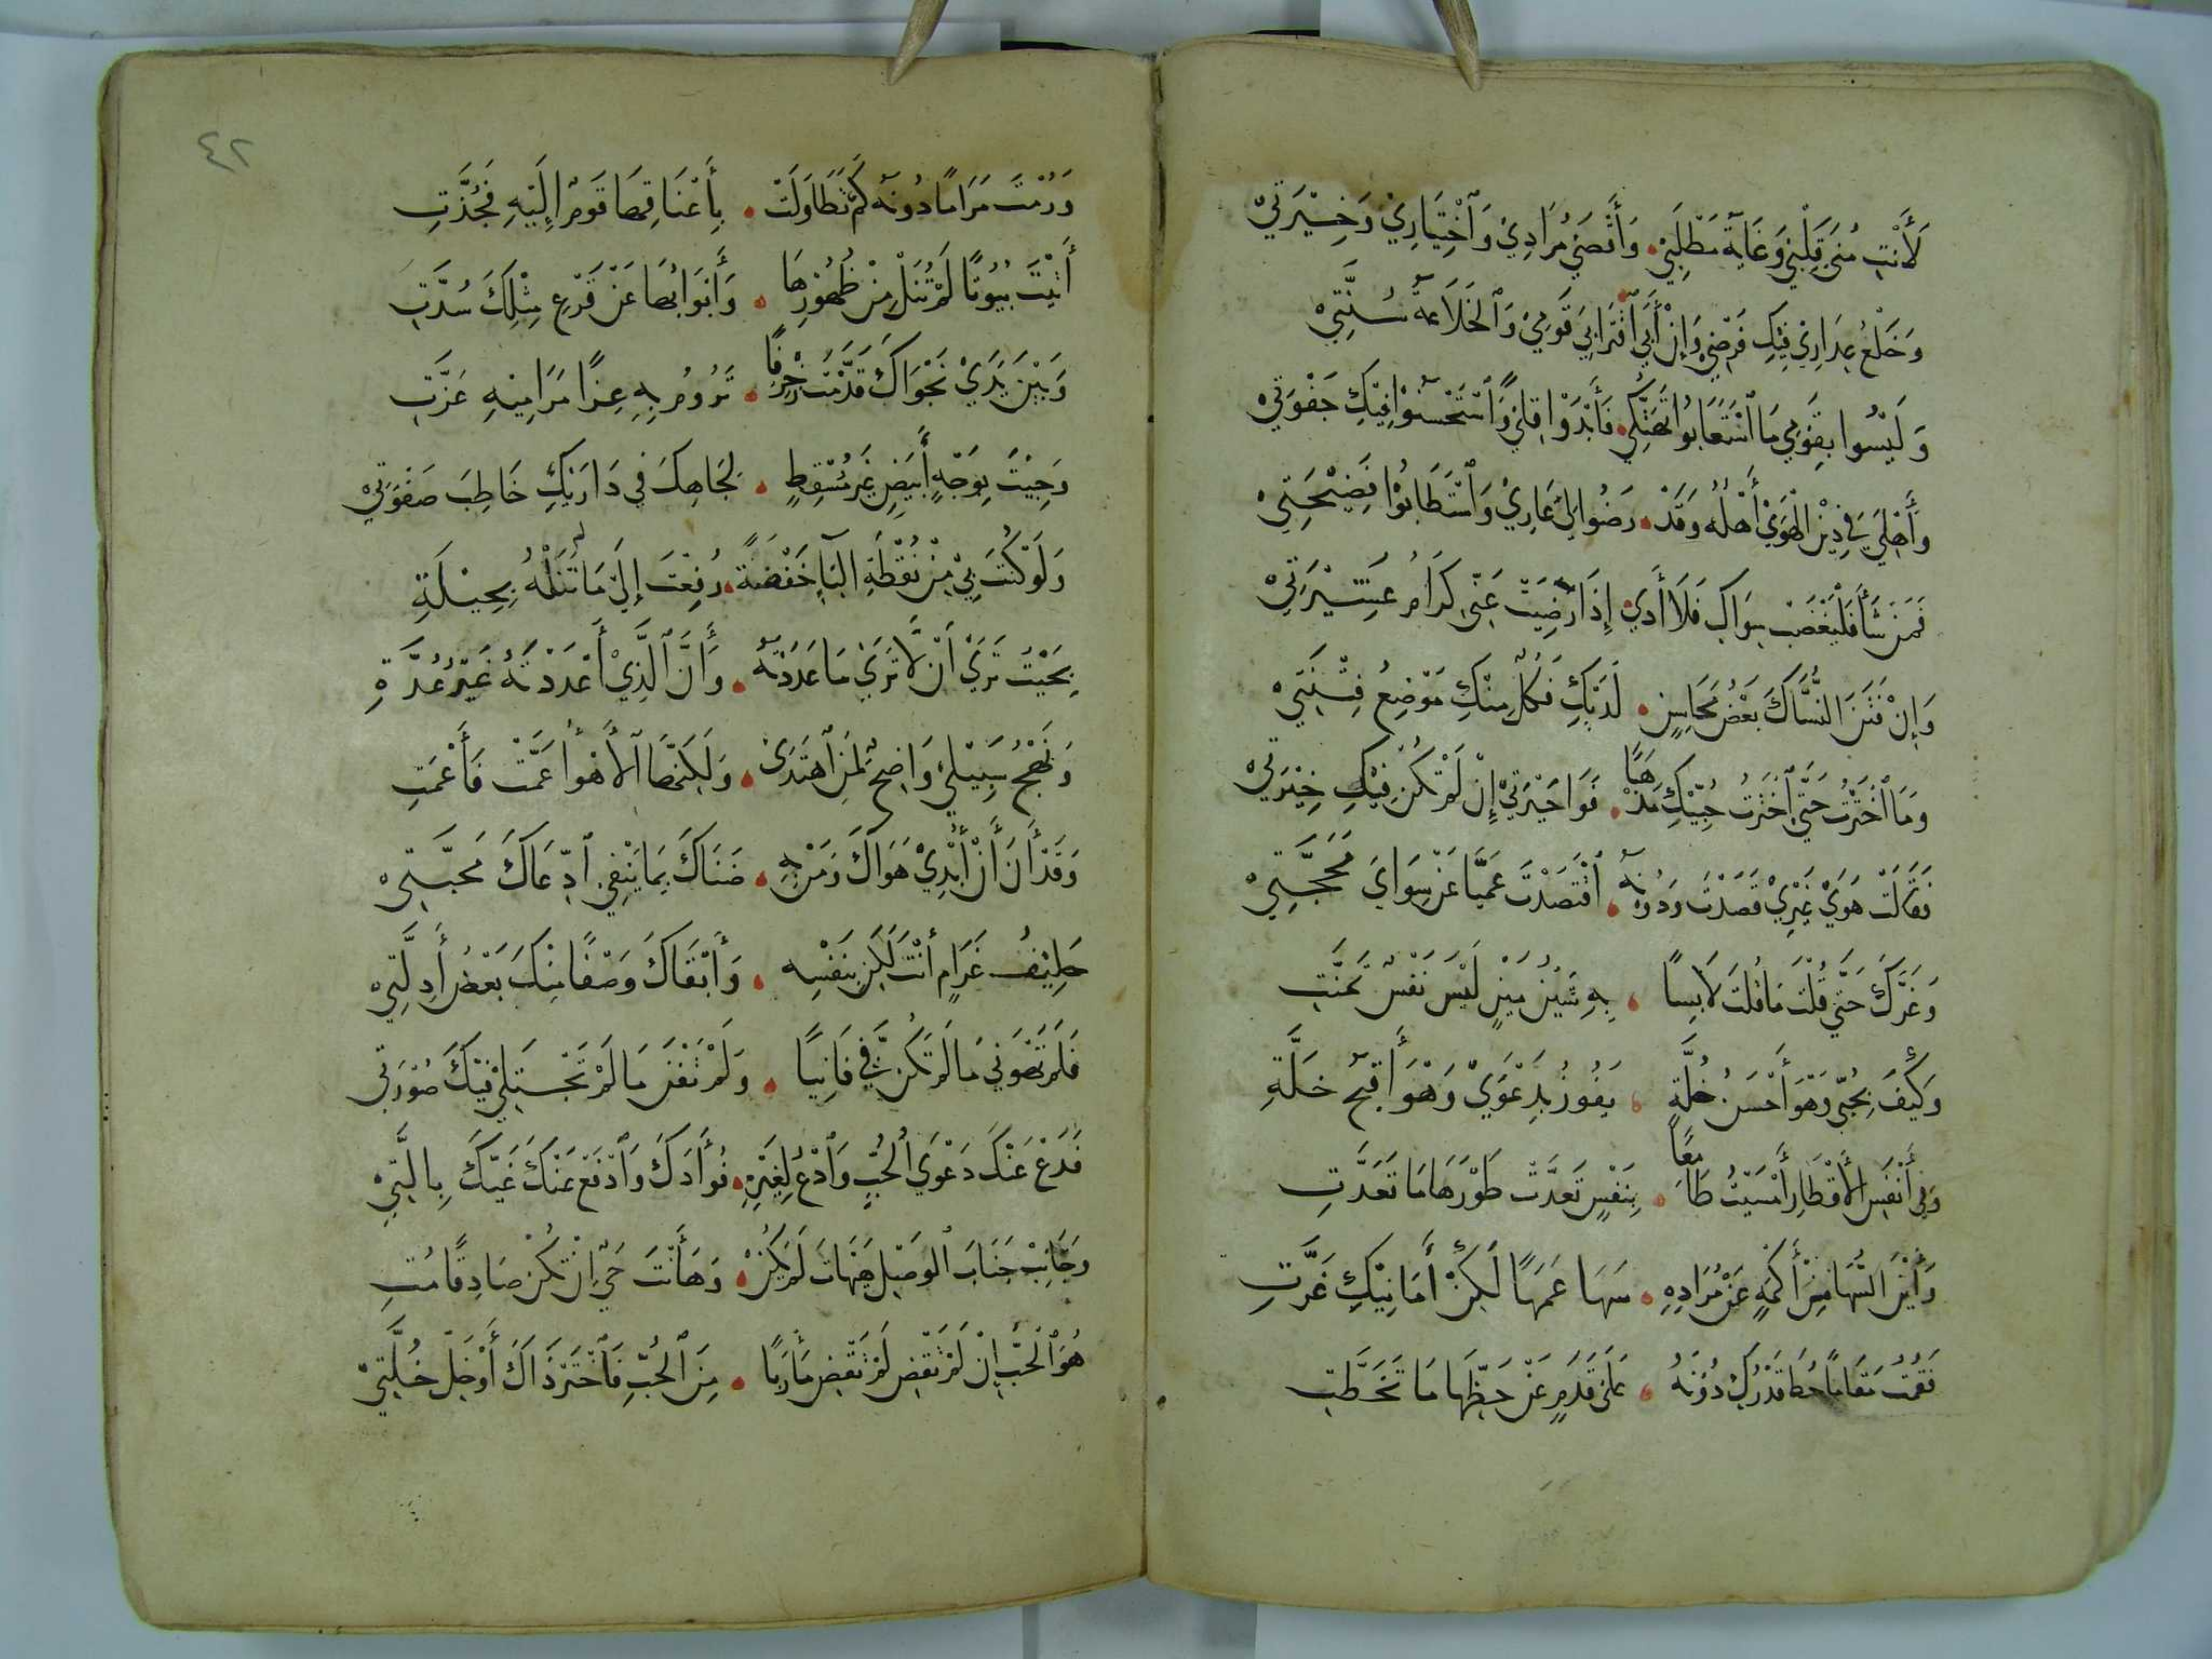 لَأَنْتِ مُنَى قَلْبِي وَغَايَةُ مَطْلَبِي . وَأَقْصَى مُرَادِي وَاخْتِيَارِي وَخِيْرَتِي
وَخَلْعُ عِذَارِي فِيْكِ فَرْضِي وَإِنْ أَبَى اقْتِرَابِيَ قَوْمِي وَالْخَلَاعَةُ سُنَّتِي
وَلَيْسُوا بِقَوْمِي مَا اسْتَعَابُوا تَهَتُّكِي . فَأَبْدَوْا قِلًى وَاسْتَحْسَنُوا فِيْكِ جَفْوَتِي
وَأَهْلِيَ فِي دِيْنِ الْهَوَى أَهْلُهُ وَقَدْ . رَضُوا لِيَ عَارِي وَاسْتَطَابُوْا فَضِيْحَتِي
فَمَنْ شَأَ فَلْيَغْضَبْ سِوَاكِ فَلَا أَذَى إِذَا رَضِيَتْ عَنِّي كِرَامُ عَشِيْرَتِي
وَإِنْ فَتَنَ النُّسَّاكَ بَعْضُ مَحَاسِنٍ . لَدَيْكِ فَكُلٌّ مِنْكِ مَوْضِعُ فِتْنَتِي
وَمَا احْتَرْتُ حَتَّى اخْتَرْتُ حُبِّيْكِ مَذْهَبًا . فَوَا حَيْرَتِي إِنْ لَمْ تَكُنْ فِيْكِ خِيْرَتِي
فَقَالَتْ هَوَى غَيْرِي قَصَدْتَ وَدُوْنَهُ . اقْتَصَدْتَ عَمِيًّا عَنْ سِوَايَ مَحَجَّتِي
وَغَرَّكَ حَتَّى قُلْتَ مَا قُلْتَ لَابِسًا . بِهِ شَيْنُ مَيْنٍ لَبْسُ نَفْسٍ تَمَنَّتِ
وَكَيْفَ بِحُبِّي وَهْوَ أَحْسَنُ خُلَّةٍ . يَفُوزُ بِدَعْوَى وَهْوَ أَقْبَحُ خَلَّةِ
وَفِي أَنْفَسِ الْأَقْطَارِ أَمْسَيْتُ طَامِعًا . بِنَفْسٍ تَعَدَّتْ طَوْرَهَا مَا تَعَدَّتِ
وَأَيْنَ السُّهَا مِنْ أَكْمَهٍ عَنْ مُرَادِهِ . سَهَا عَمَهًا لَكِنْ أَمَانِيْكِ غَرَّتِ
فَقُمْتَ مَقَامًا حُطَّ قَدْرُكَ دُوْنَهُ . عَلَى قَدَمٍ عَنْ حَظِّهَا مَا تَخَطَّتِ
٤٢
وَرُمْتَ مَرَامًا دُونَهُ كَمْ تَطَاوَلَتْ . بِأَعْنَاقِهَا قَومٌ إِلَيْهِ فَجُذَّتِ
أَتَيْتَ بُيُوتًا لَمْ تُنَلْ مِنْ ظُهُوْرِهَا . وَأَبْوَابُهَا عَنْ قَرْعِ مِثْلِكَ سُدَّتِ
وَبَيْنَ يَدَيْ نَجْوَاكَ قَدَّمْتَ زُخْرُفًا . تَرُومُ بِهِ عِزًّا مَرَامِيْهِ عَزَّتِ
وَجِيْتَ بِوَجْهٍ أَبْيَضٍ غَيْرَ مُسْقِطٍ . لِجَاهِكَ فِي دَارَيْكِ خَاطِبَ صَفْوَتِي
وَلَوْ كُنْتَ بِيْ مِنْ نُقْطَةِ الْبَآءِ خَفْضَةً . رُفِعْتَ إِلَى مَا لَمْ تَنَلْهُ بِحِيْلَةِ
بِحَيْثُ تَرَى أَنْ لَّا تَرَى مَا عَدَدْتَهُ . وَأَنَّ الَّذِيْ أَعْدَدْتَهُ غَيْرُ عُدَّةِ
وَنَهْجُ سَبِيْلِي وَاضِحٌ لِمَنِ اهْتَدَى . وَلَكِنَّهَا الْأَهْوَاءُ عَمَّتْ فَأَعْمَتِ
وَقَدْ أَنَ أَنْ أُبْدِيْ هَوَاكَ وَمَنْ بِهِ . ضَنَاكَ بِمَا يَنْفِي ادِّعَاكَ مَحَبَّتِي
حَلِيْفُ غَرَامٍ أَنْتَ لَكِنْ بِنَفْسِهِ . وَأَبْقَاكَ وَصْفًا مِنْكَ بَعْضُ أَدِلَّتِي
فَلَمْ تَهْوَنِي مَا لَمْ تَكُنْ فِيَّ فَانِيًا . وَلَمْ تَفْنَ مَا لَمْ تَجْتَلِيْ فِيْكَ صُوْرَتِي
فَدَعْ عَنْكَ دَعْوَى الْحُبِّ وَادْعُ لِغَيْرِهِ . فُؤَادَكَ وَادْفَعْ عَنْكَ غَيَّكَ بِالَّتِي
وَجَانِبْ جَنَابَ الْوَصْلِ هَيْهَاتَ لَمْ يَكُنْ . وَهَا أَنْتَ حَيٌّ إِنْ تَكُنْ صَادِقًا مُتِ
هُوَ الْحُبُّ إِنْ لَمْ تَقْضِ لَمْ تَقْضِ مَأْرَبًا . مِنَ الْحُبِّ فَاخْتَرْ ذَاكَ أَوْ خَلِّ خُلَّتِي